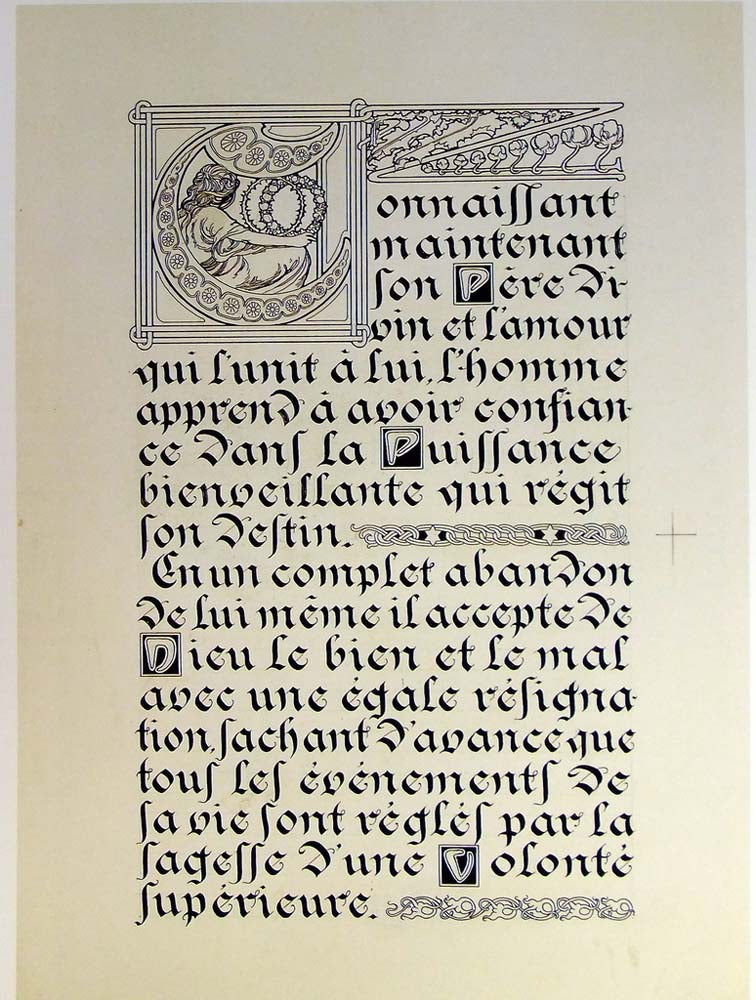 Connaissant
maintenant
son Père Di-
vin et l'amour
qui l'unit à lui, l'homme
apprend à avoir confian-
ce dans la Puissance
bienveillante qui régit
son destin.
En un complet abandon
de lui même il accepte de
Dieu le bien et le mal
avec une égale résigna-
tion, sachant d'avance que
tous les événements de
sa vie sont réglés par la
sagesse d'une Volonté
supérieure.